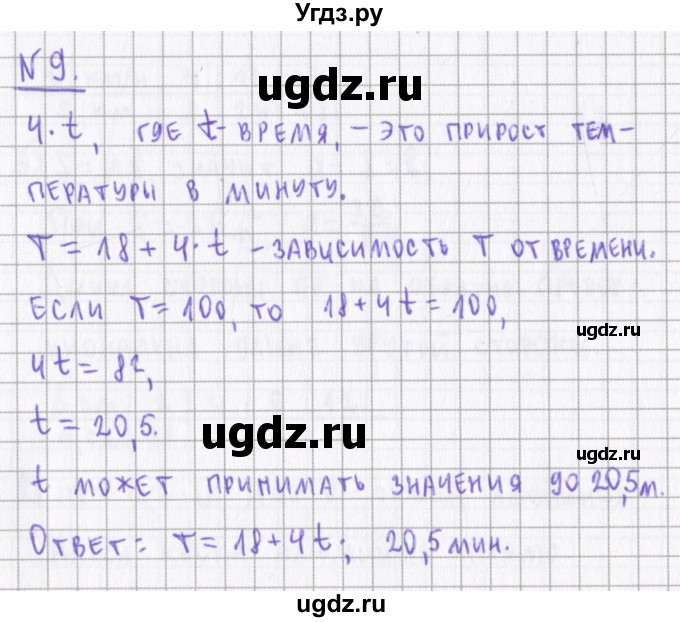 Угдз.ру
N 9.
ugdz.ru
4·t, где t - время, - это прирост тем-
пературы в минуту.
T = 18 + 4·t - зависимость T от времени.
Если T = 100, то 18 + 4t = 100,
ugdz.ru
4t = 82,
t = 20,5.
ugdz.ru
ugdz.ru
t может принимать значения до 20,5 м.
Ответ: T = 18 + 4t; 20,5 мин.
ugdz.ru
ugdz.ru